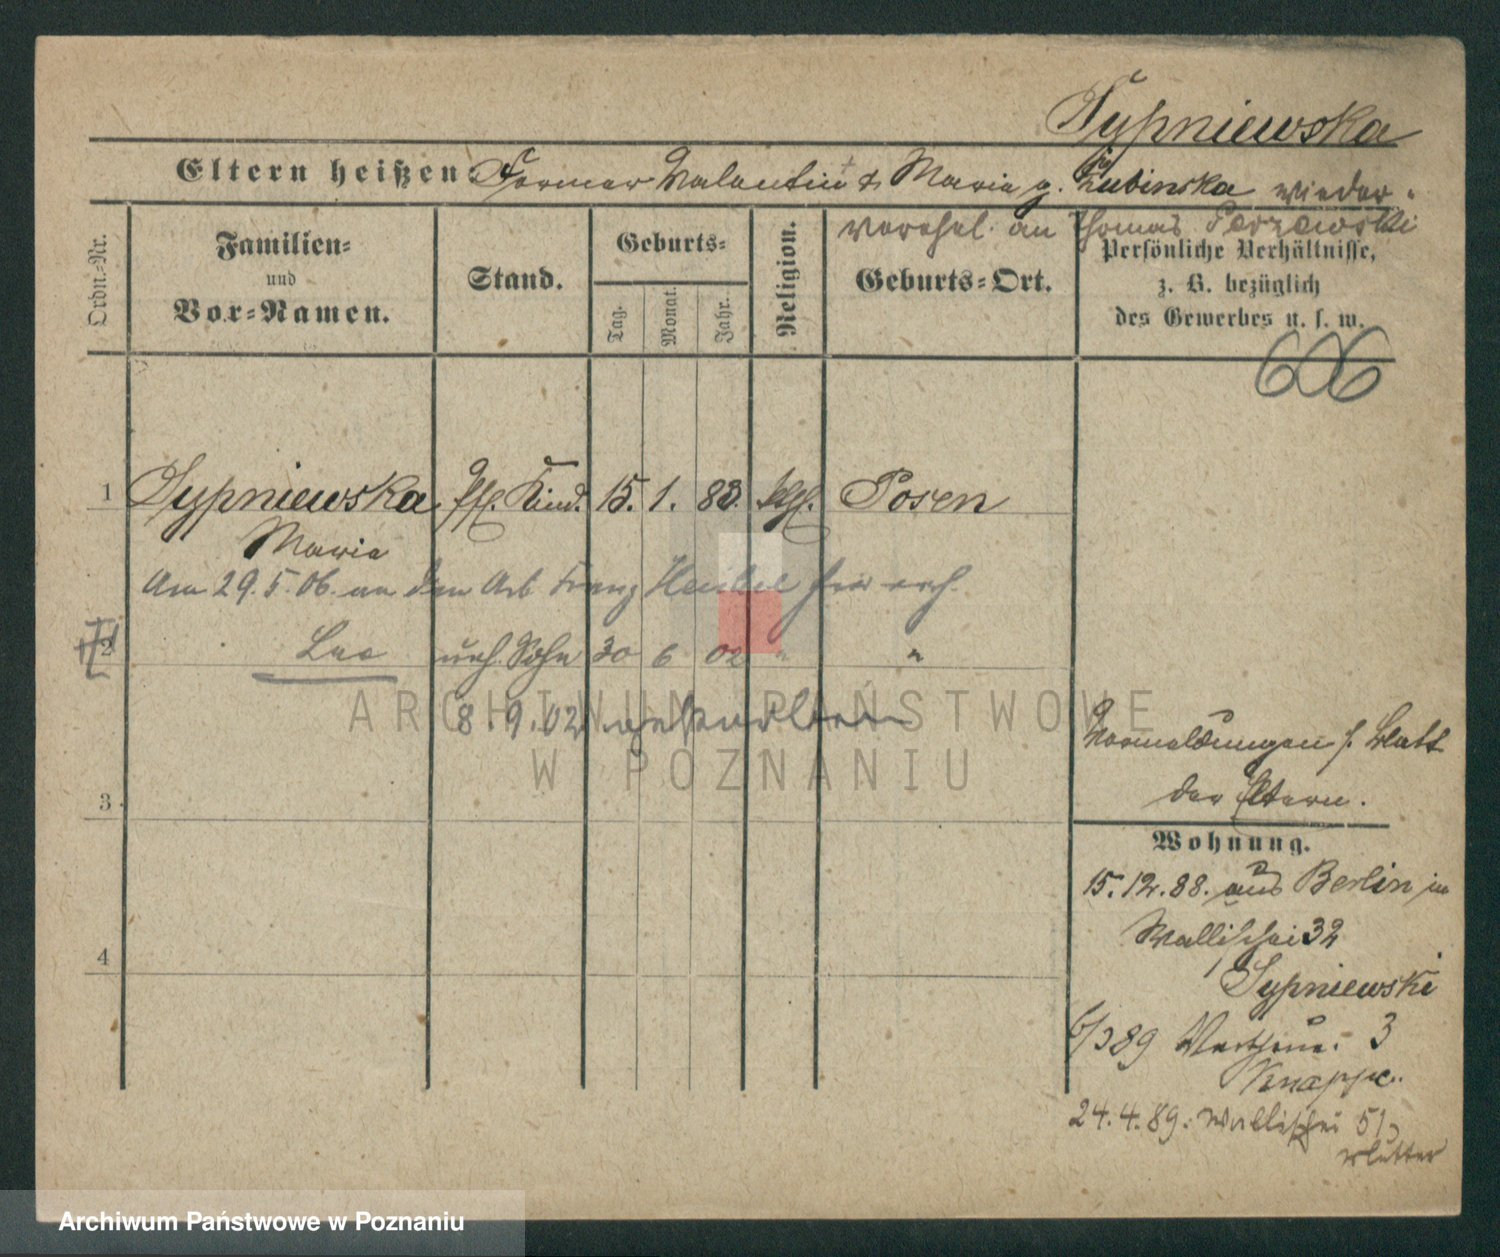 Sypniewska
Eltern heißen: Former Valentin † & Maria g. Lubinska wieder
verehel. an Thomas
Ordn.-Nr.
Familien-
und
Vor-Namen.
Stand.
Geburts-
Tag.
Monat.
Jahr.
Religion.
Geburts-Ort.
Persönliche Verhältnisse,
z. B. bezüglich
des Gewerbes u. s. w.
606
1 Sypniewska Kind. 15. 1. 83. kth. Posen
Maria
Am 29.5.06. an den Arb Franz
2 Leo uneh. Sohn 30 6 02 " "
8.9.02
ARCHIWUM PAŃSTWOWE
W POZNANIU
Vormeldungen s. Blatt
der Eltern.
3
Wohnung.
15.12.88. aus Berlin in
Wallischei 32
Sypniewski
4
6/3 89 3
Knappe.
24.4.89. Wallischei 51
Mutter
Archiwum Państwowe w Poznaniu